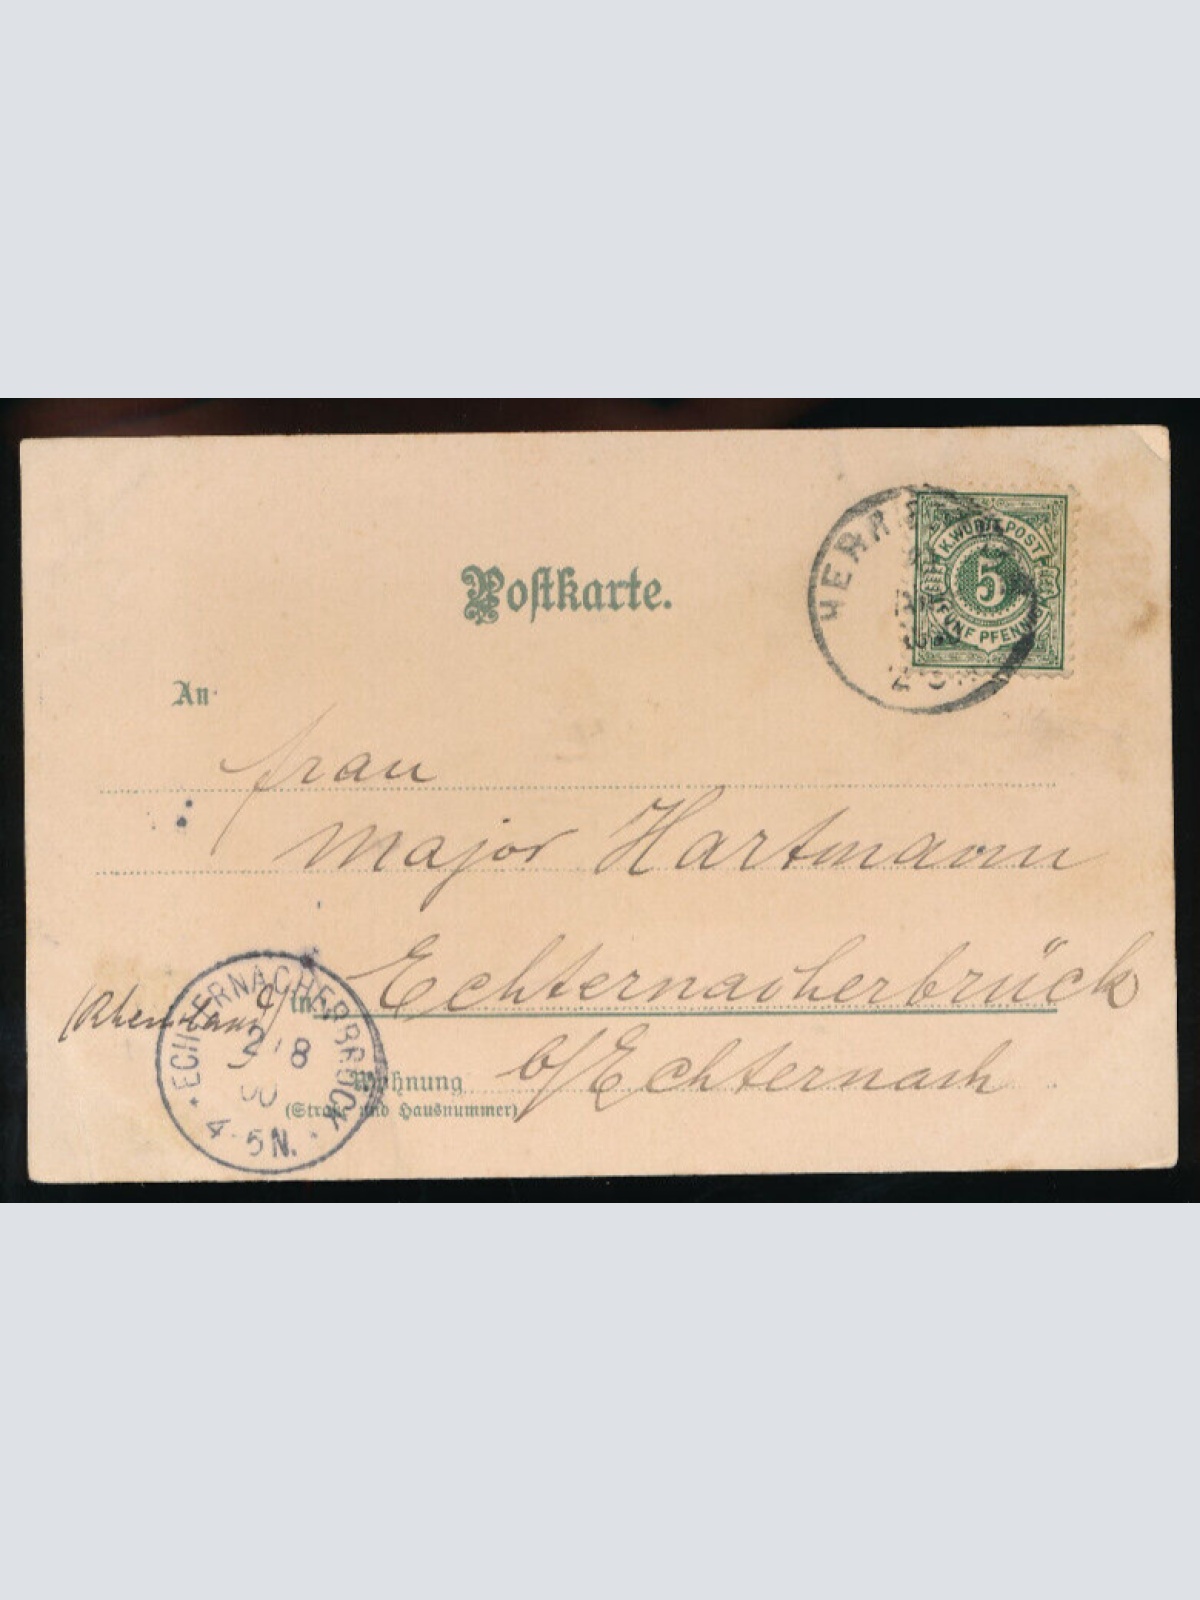 Postkarte.
K. WÜRTT. POST
5
FÜNF PFENNIG
An
Frau
Major Hartmann
in Echternacherbrück
(Rheinland)
b/Echternach
Wohnung
(Straße und Hausnummer)
ECHTERNACHERBRÜCK
2/8
00
4-5N.